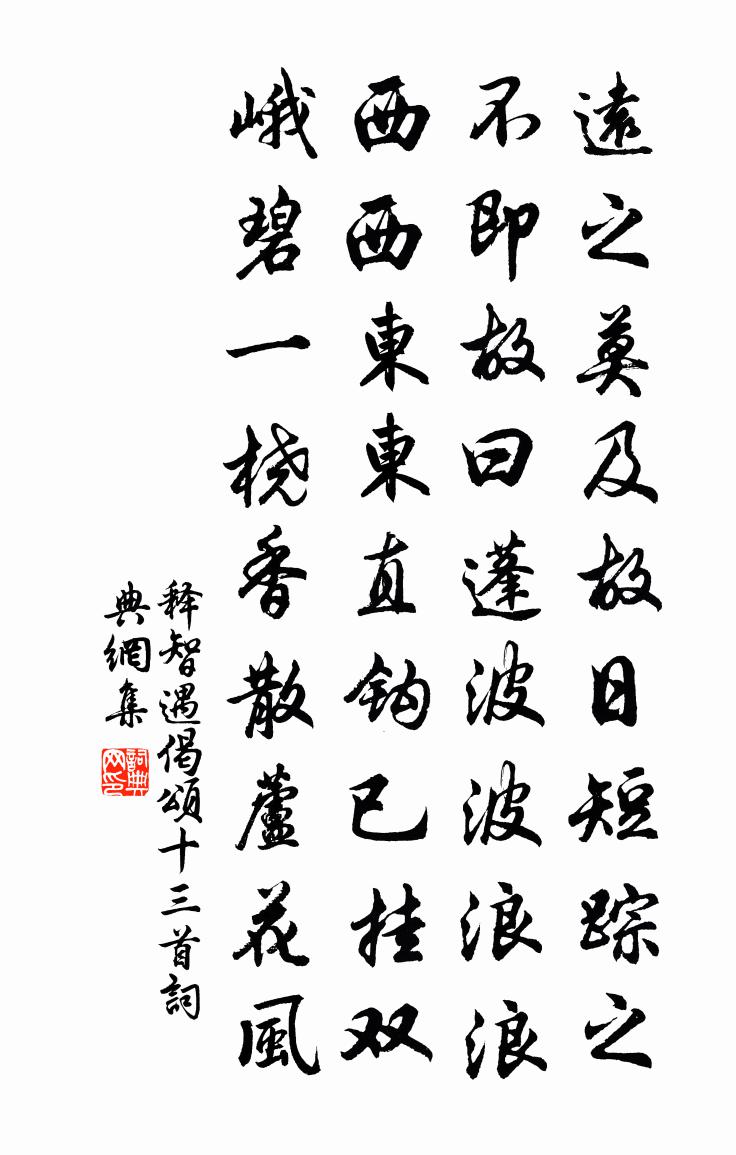 遠之莫及故日短踪之
不即故曰蓬波波浪浪
西西東東直鈎已挂双
峨碧一桡香散蘆花風
释智遇偈頌十三首詞
典網集
詞典網印